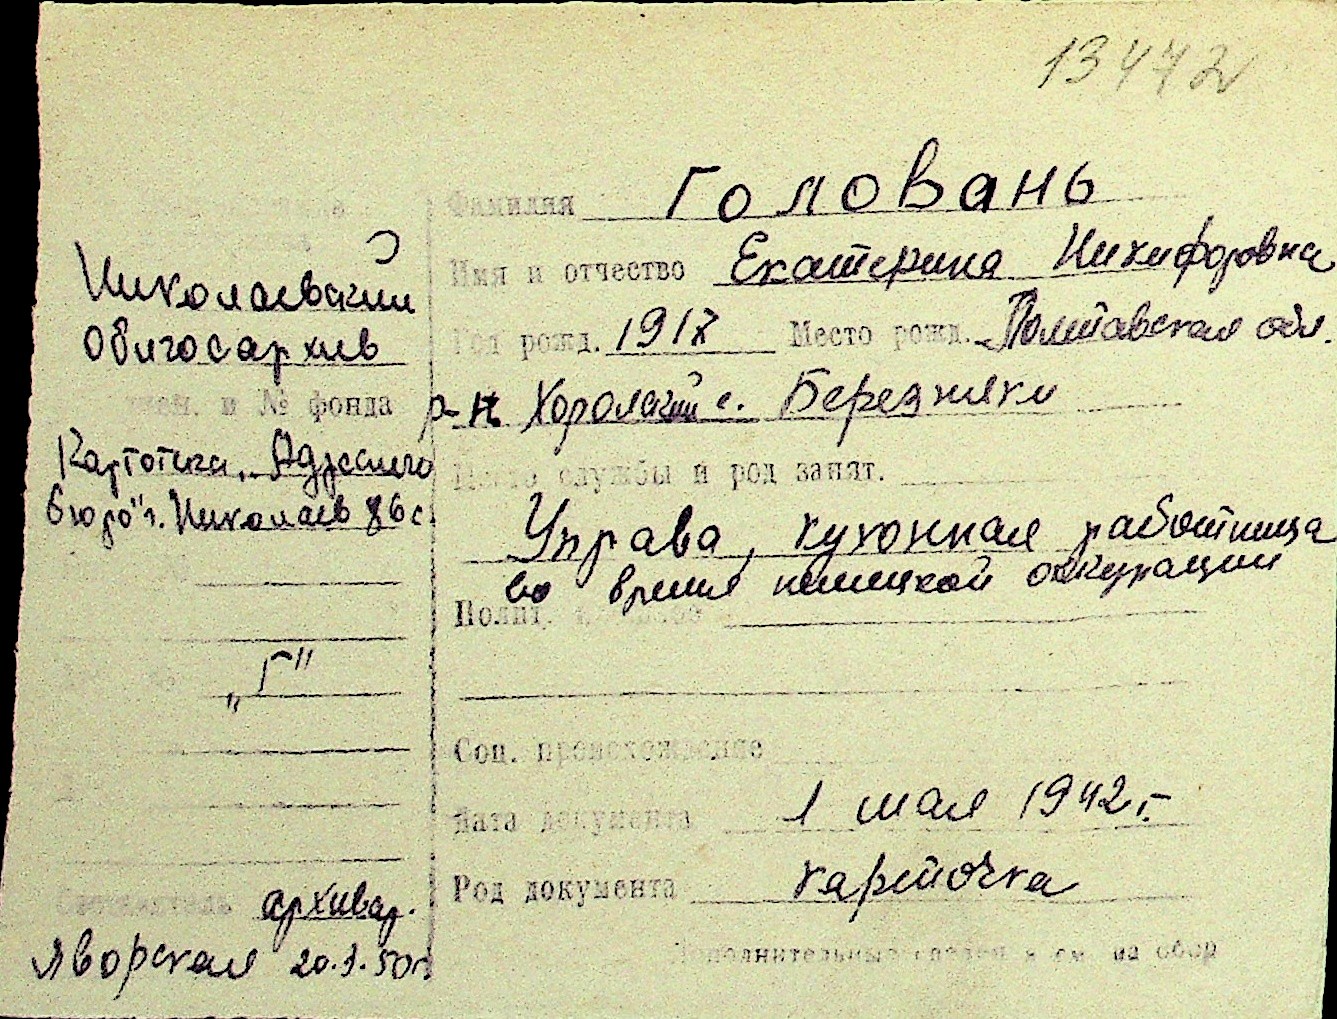 13472
Фамилия Головань
Имя и отчество Екатерина Никифоровна
Год рожд. 1917 Место рожд. Полтавская обл.
р-н Хорольский с. Березняки
Место службы и род занят.
Управа, кухонная работница
во время немецкой оккупации
Полит.
Соц. происхождение
Дата документа 1 мая 1942 г.
Род документа карточка
Дополнительные сведен я см на обор
Николаевский
Облгосархив
и № фонда
Картотека „Адресного
бюро" г. Николаев
„Г"
Составитель архивар.
Яворская 20.9.50г.